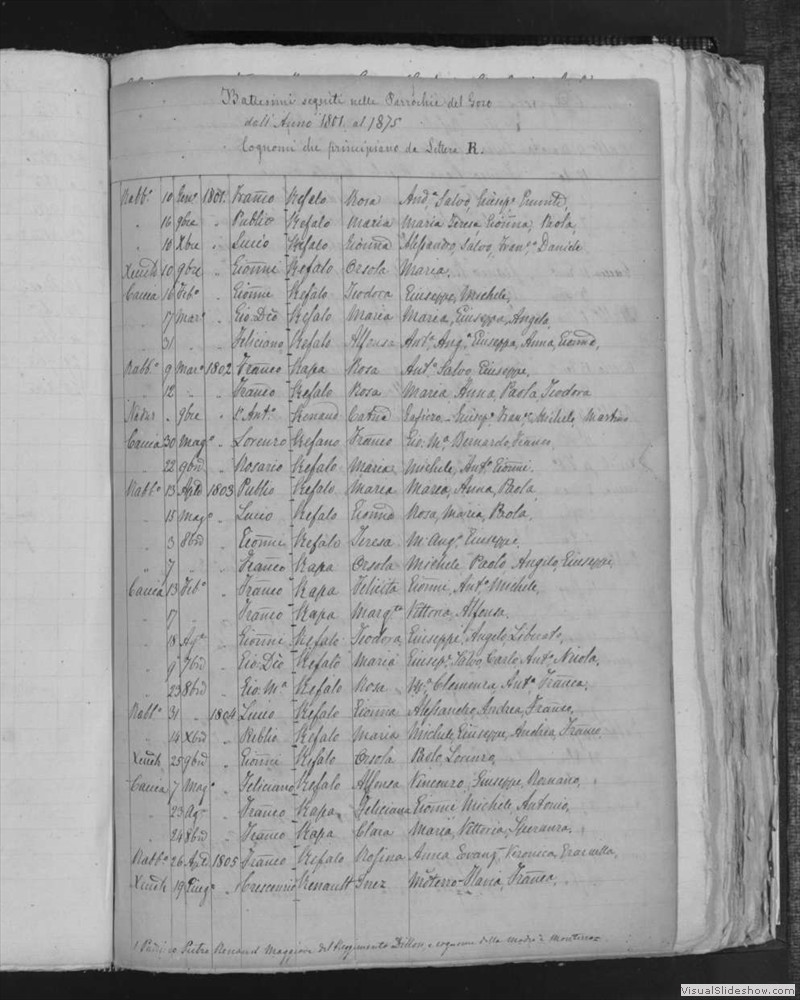 Battesimi seguiti nelle Parrochie del Gozo
dall'Anno 1801 al 1875
Cognomi che principiano da Lettera R.
Rabb.º 10 1801 Franco Refalo Rosa And.ª Salvo,
" 16 9bre " Publio Refalo Maria Maria Teresa Gionna, Paola,
" 10 Xbre " Lucio Refalo Gionna Alessandro, Salvo, Daniele
Xeuch 10 9bre " Gionni Refalo Orsola Maria,
Caccia 16 Feb.º " Gionni Refalo Teodora Giuseppe, Michele,
" 7 Mar.º " Gio: Dio Refalo Maria Maria, Giuseppa, Angelo,
" 31 " " Feliciano Refalo Alfonsa Ant.º Ang.ª Giuseppa, Anna, Gionni,
Rabb.º 9 Mar.º 1802 Franco Rapa Rosa Ant.º Salvo, Giuseppe,
" 12 " " Franco Refalo Rosa Maria Anna, Paola, Teodora
Nadur " 9bre " Renaud Catnã Giusep.ª Fran.ª Michele, Martino
Caccia 30 Mag.º " Lorenzo Refano Franca Gio. M.ª Bernardo, Franco,
" 22 9bre " Rosario Refalo Maria Michele, Ant.º Gionni.
Rabb.º 13 1803 Publio Refalo Maria Maria, Anna, Paola
" 15 Mag.º " Lucio Refalo Gionna Rosa, Maria, Paola,
" 3 8bre " Gionni Refalo Teresa M. Ang.ª Giuseppe
" 7 " " Franco Rapa Orsola Michele Paolo Angelo, Giuseppe,
Caccia 13 Feb.º " Franco Rapa Felicita Gionni, Ant.º Michele,
" 17 " " Franco Rapa Marg.ta Vittoria, Alfonsa.
" 18 Ag.º " Gionni Refalo Teodora Giuseppe, Angelo, Liberato,
" 9 7bre " Gio. Dio Refalo Maria Giusep.ª Salvo, Carlo, Ant.º Nicola,
" 23 8bre " Gio. M.ª Refalo Rosa M.ª Clemenza, Ant.ª Franca,
Rabb.º 31 " 1804 Lucio Refalo Gionna Alessandro, Andrea, Franco,
" 14 Xbre " Publio Refalo Maria Michele, Giuseppe, Andrea, Franco
Xeuch 25 9bre " Gionni Refalo Orsola Paolo, Lorenzo,
Caccia 7 Mag.º " Feliciano Refalo Alfonsa Vincenzo, Giuseppe, Romano,
" 23 Ag.º " Franco Rapa Feliciana Gionni Michele, Antonio,
" 24 8bre " Franco Rapa Clara Maria, Vittoria, Speranza,
Rabb.º 26 1805 Franco Refalo Rosina Anna Evang.ª Veronica,
Xeuch 19 Giug.º " Crescenzio Renault Inez Maria, Franca,
Pietro Renaud Maggiore del Reggimento Dillon, e cognome della madre è
VisualSlideshow.com